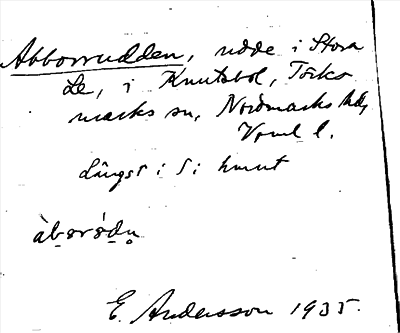 Abborrudden, udde i Stora
Le, i Knutsbol, Törks
marks sn, Nordmarks hd,
Vrml l.
Längst i S i hmnt
E. Andersson 1935.